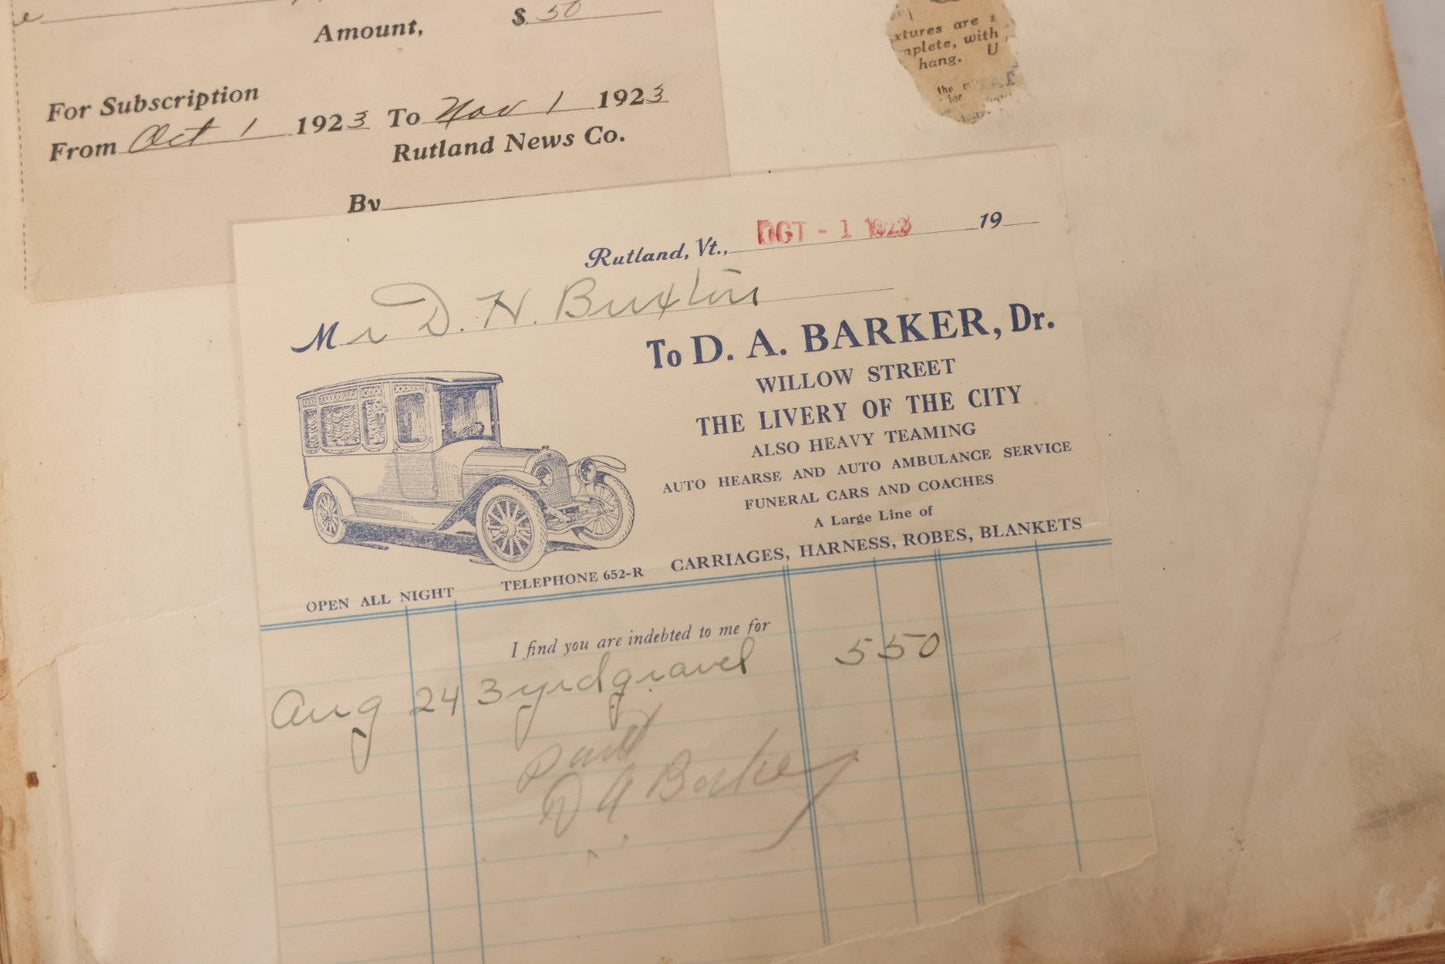 Amount, $ 50
For Subscription
From Oct 1 1923 To Nov 1 1923
Rutland News Co.
By
xtures are
mplete, with
hang. U
the
Rutland, Vt., OCT - 1 1923 19
Mr D. H. Buxton
To D. A. BARKER, Dr.
WILLOW STREET
THE LIVERY OF THE CITY
ALSO HEAVY TEAMING
AUTO HEARSE AND AUTO AMBULANCE SERVICE
FUNERAL CARS AND COACHES
A Large Line of
CARRIAGES, HARNESS, ROBES, BLANKETS
OPEN ALL NIGHT TELEPHONE 652-R
I find you are indebted to me for
Aug 24 3 yrd gravel 5 50
paid
D A Barker